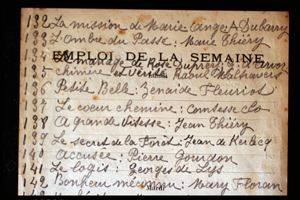 132 La mission de Marie-Ange: A. Dubarry
133 L'Ombre du Passé: Marie Thiéry
EMPLOI DE LA SEMAINE
134 Mariage de Rose Duprey:
135 Chimère et Vérité: Raoul Malhavers
136 Petite Belle: Zénaïde Fleuriot
137 Le coeur chemine: Comtesse Clo
138 A grande vitesse: Jean Thiéry
139 Le secret de la Forêt: Jean de Kerlecq
140 Accusée: Pierre Gourdon
141 Le logis: Georges de Lys
142 Bonheur méconnu: Mary Floran